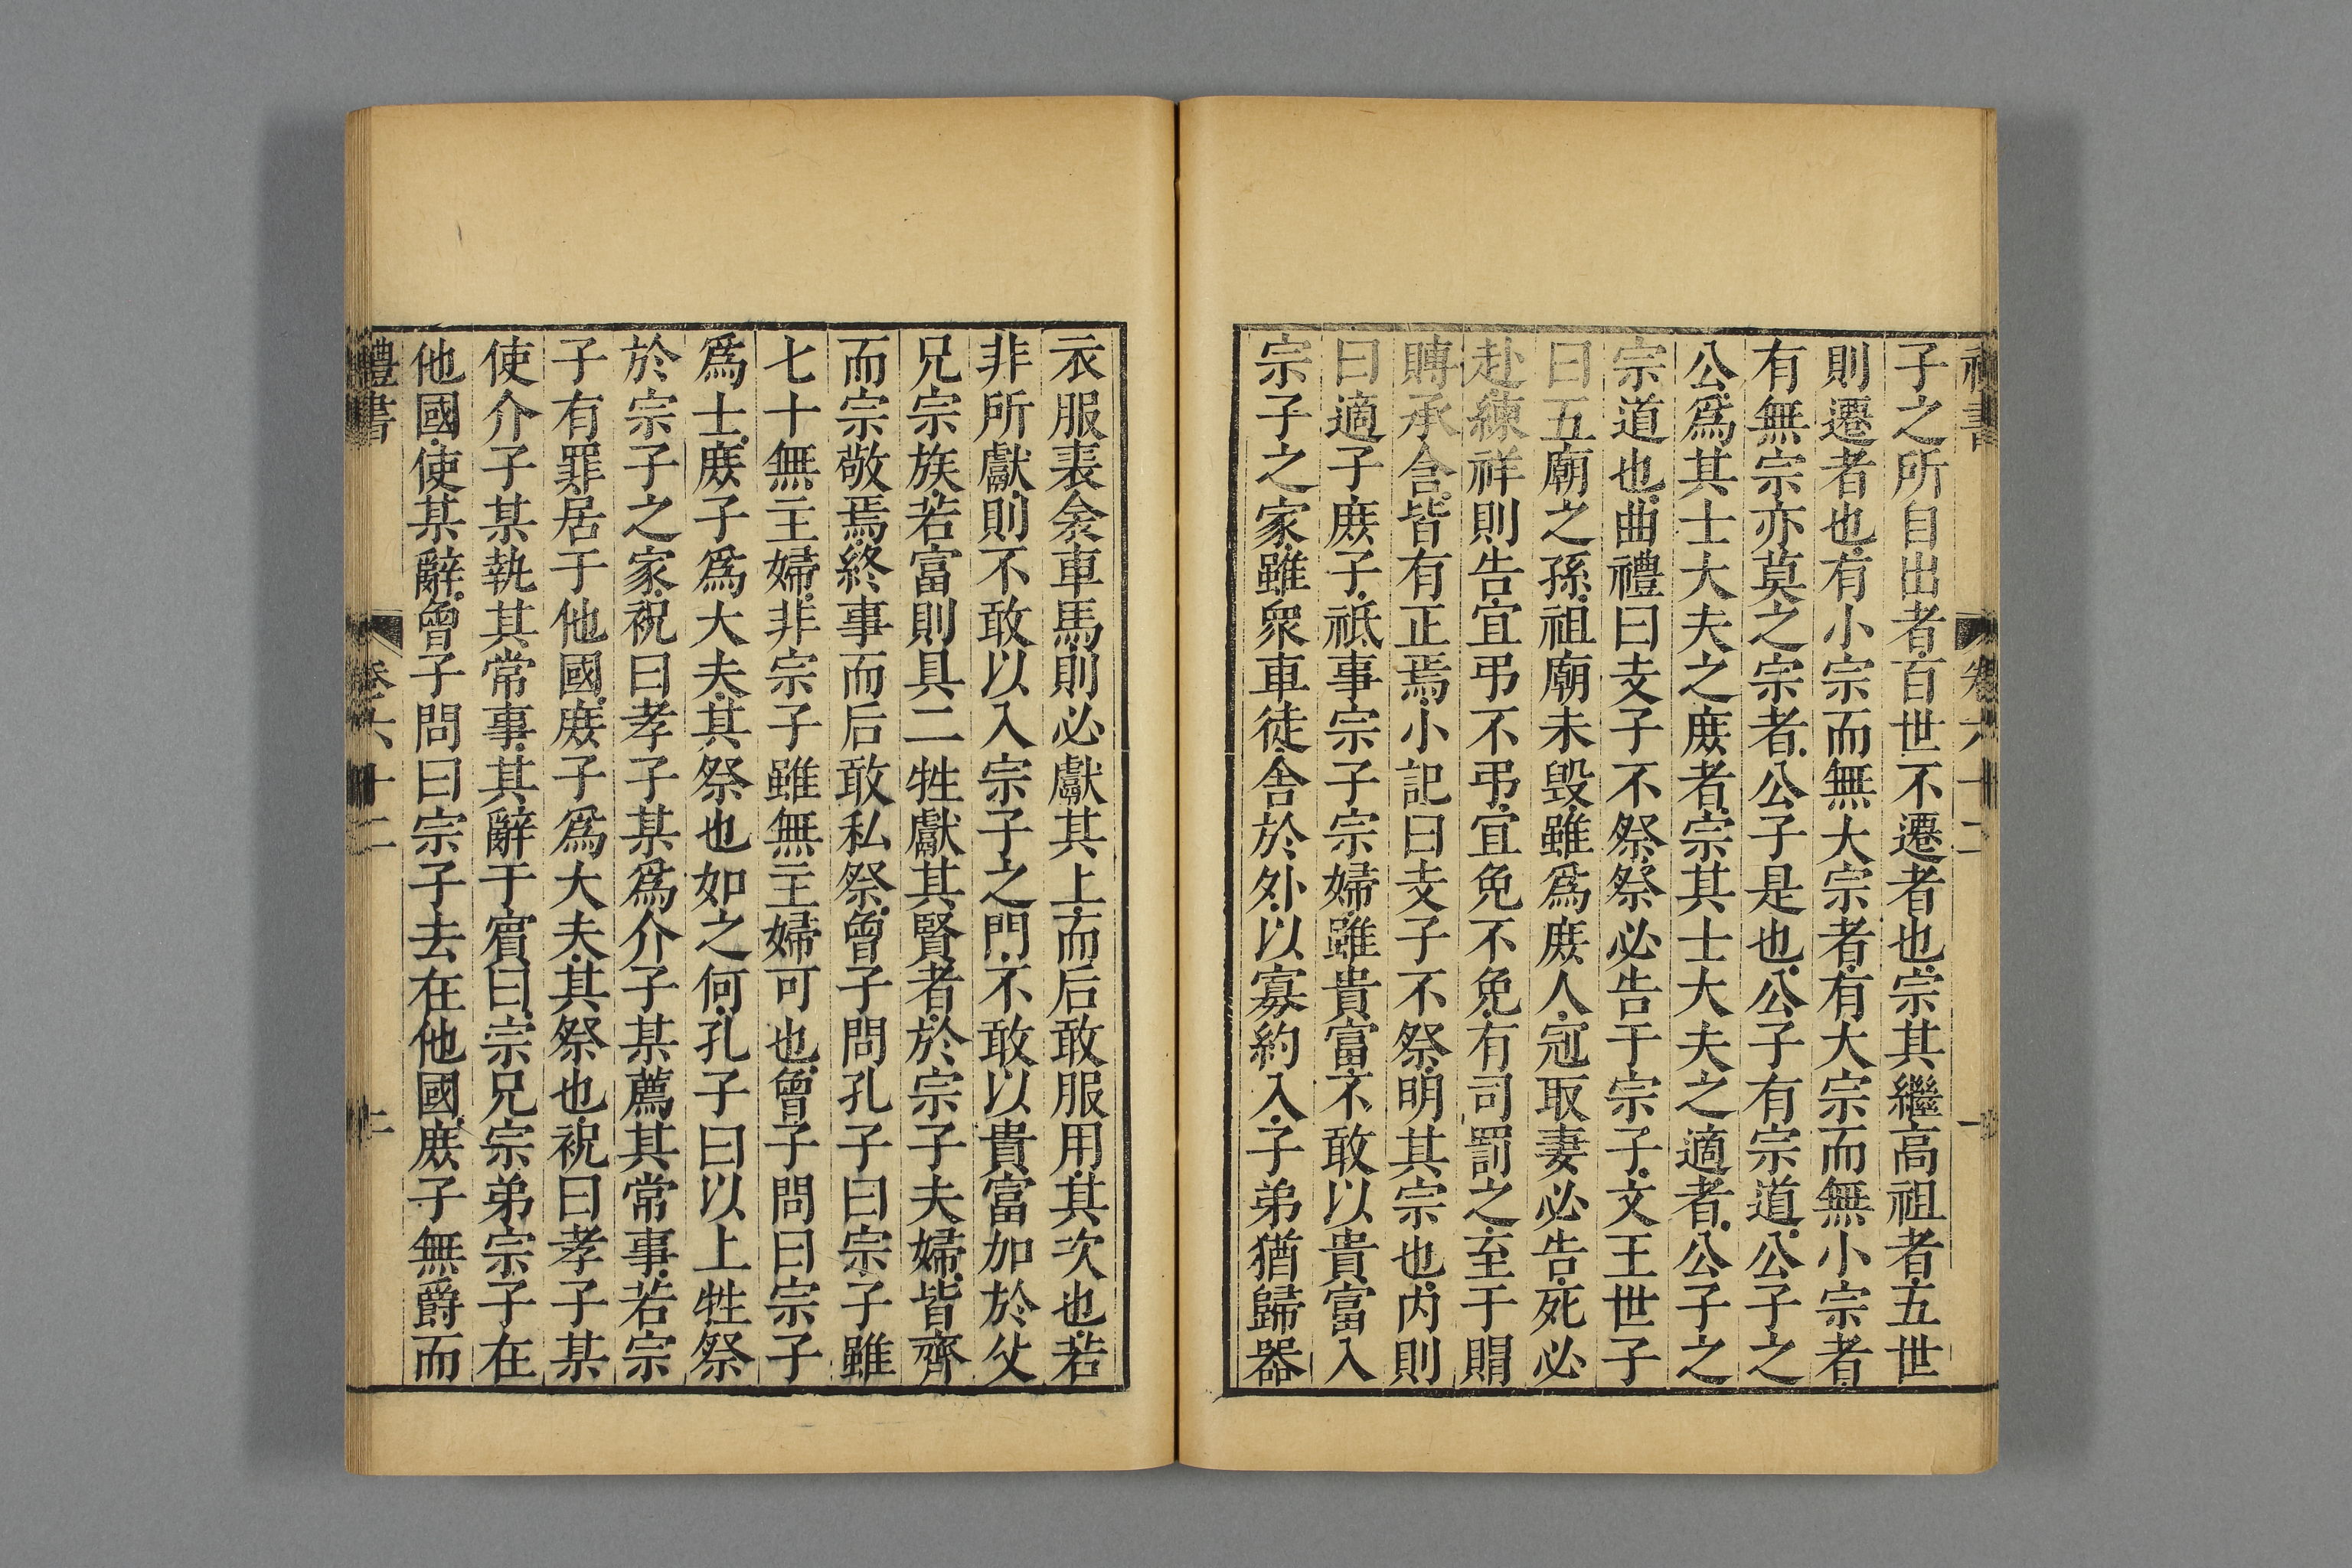 禮書 卷六十二 一
子之所自出者百世不遷者也宗其繼高祖者五世
則遷者也有小宗而無大宗者有大宗而無小宗者
有無宗亦莫之宗者公子是也公子有宗道公子之
公爲其士大夫之庻者宗其士大夫之適者公子之
宗道也曲禮曰支子不祭祭必告于宗子文王世子
曰五廟之孫祖廟未毀雖爲庻人冠取妻必告死必
赴練祥則告宜弔不弔宜免不免有司罰之至于賵
賻承含皆有正焉小記曰支子不祭明其宗也内則
曰適子庻子祗事宗子宗婦雖貴富不敢以貴富入
宗子之家雖衆車徒舍於外以寡約入子弟猶歸器
衣服裘衾車馬則必獻其上而后敢服用其次也若
非所獻則不敢以入宗子之門不敢以貴富加於父
兄宗族若富則具二牲獻其賢者於宗子夫婦皆齊
而宗敬焉終事而后敢私祭曾子問孔子曰宗子雖
七十無主婦非宗子雖無主婦可也曾子問曰宗子
爲士庻子爲大夫其祭也如之何孔子曰以上牲祭
於宗子之家祝曰孝子某爲介子某薦其常事若宗
子有罪居于他國庻子爲大夫其祭也祝曰孝子某
使介子某執其常事其辭于賔曰宗兄宗弟宗子在
他國使某辭曾子問曰宗子去在他國庻子無爵而
禮書 卷六十二